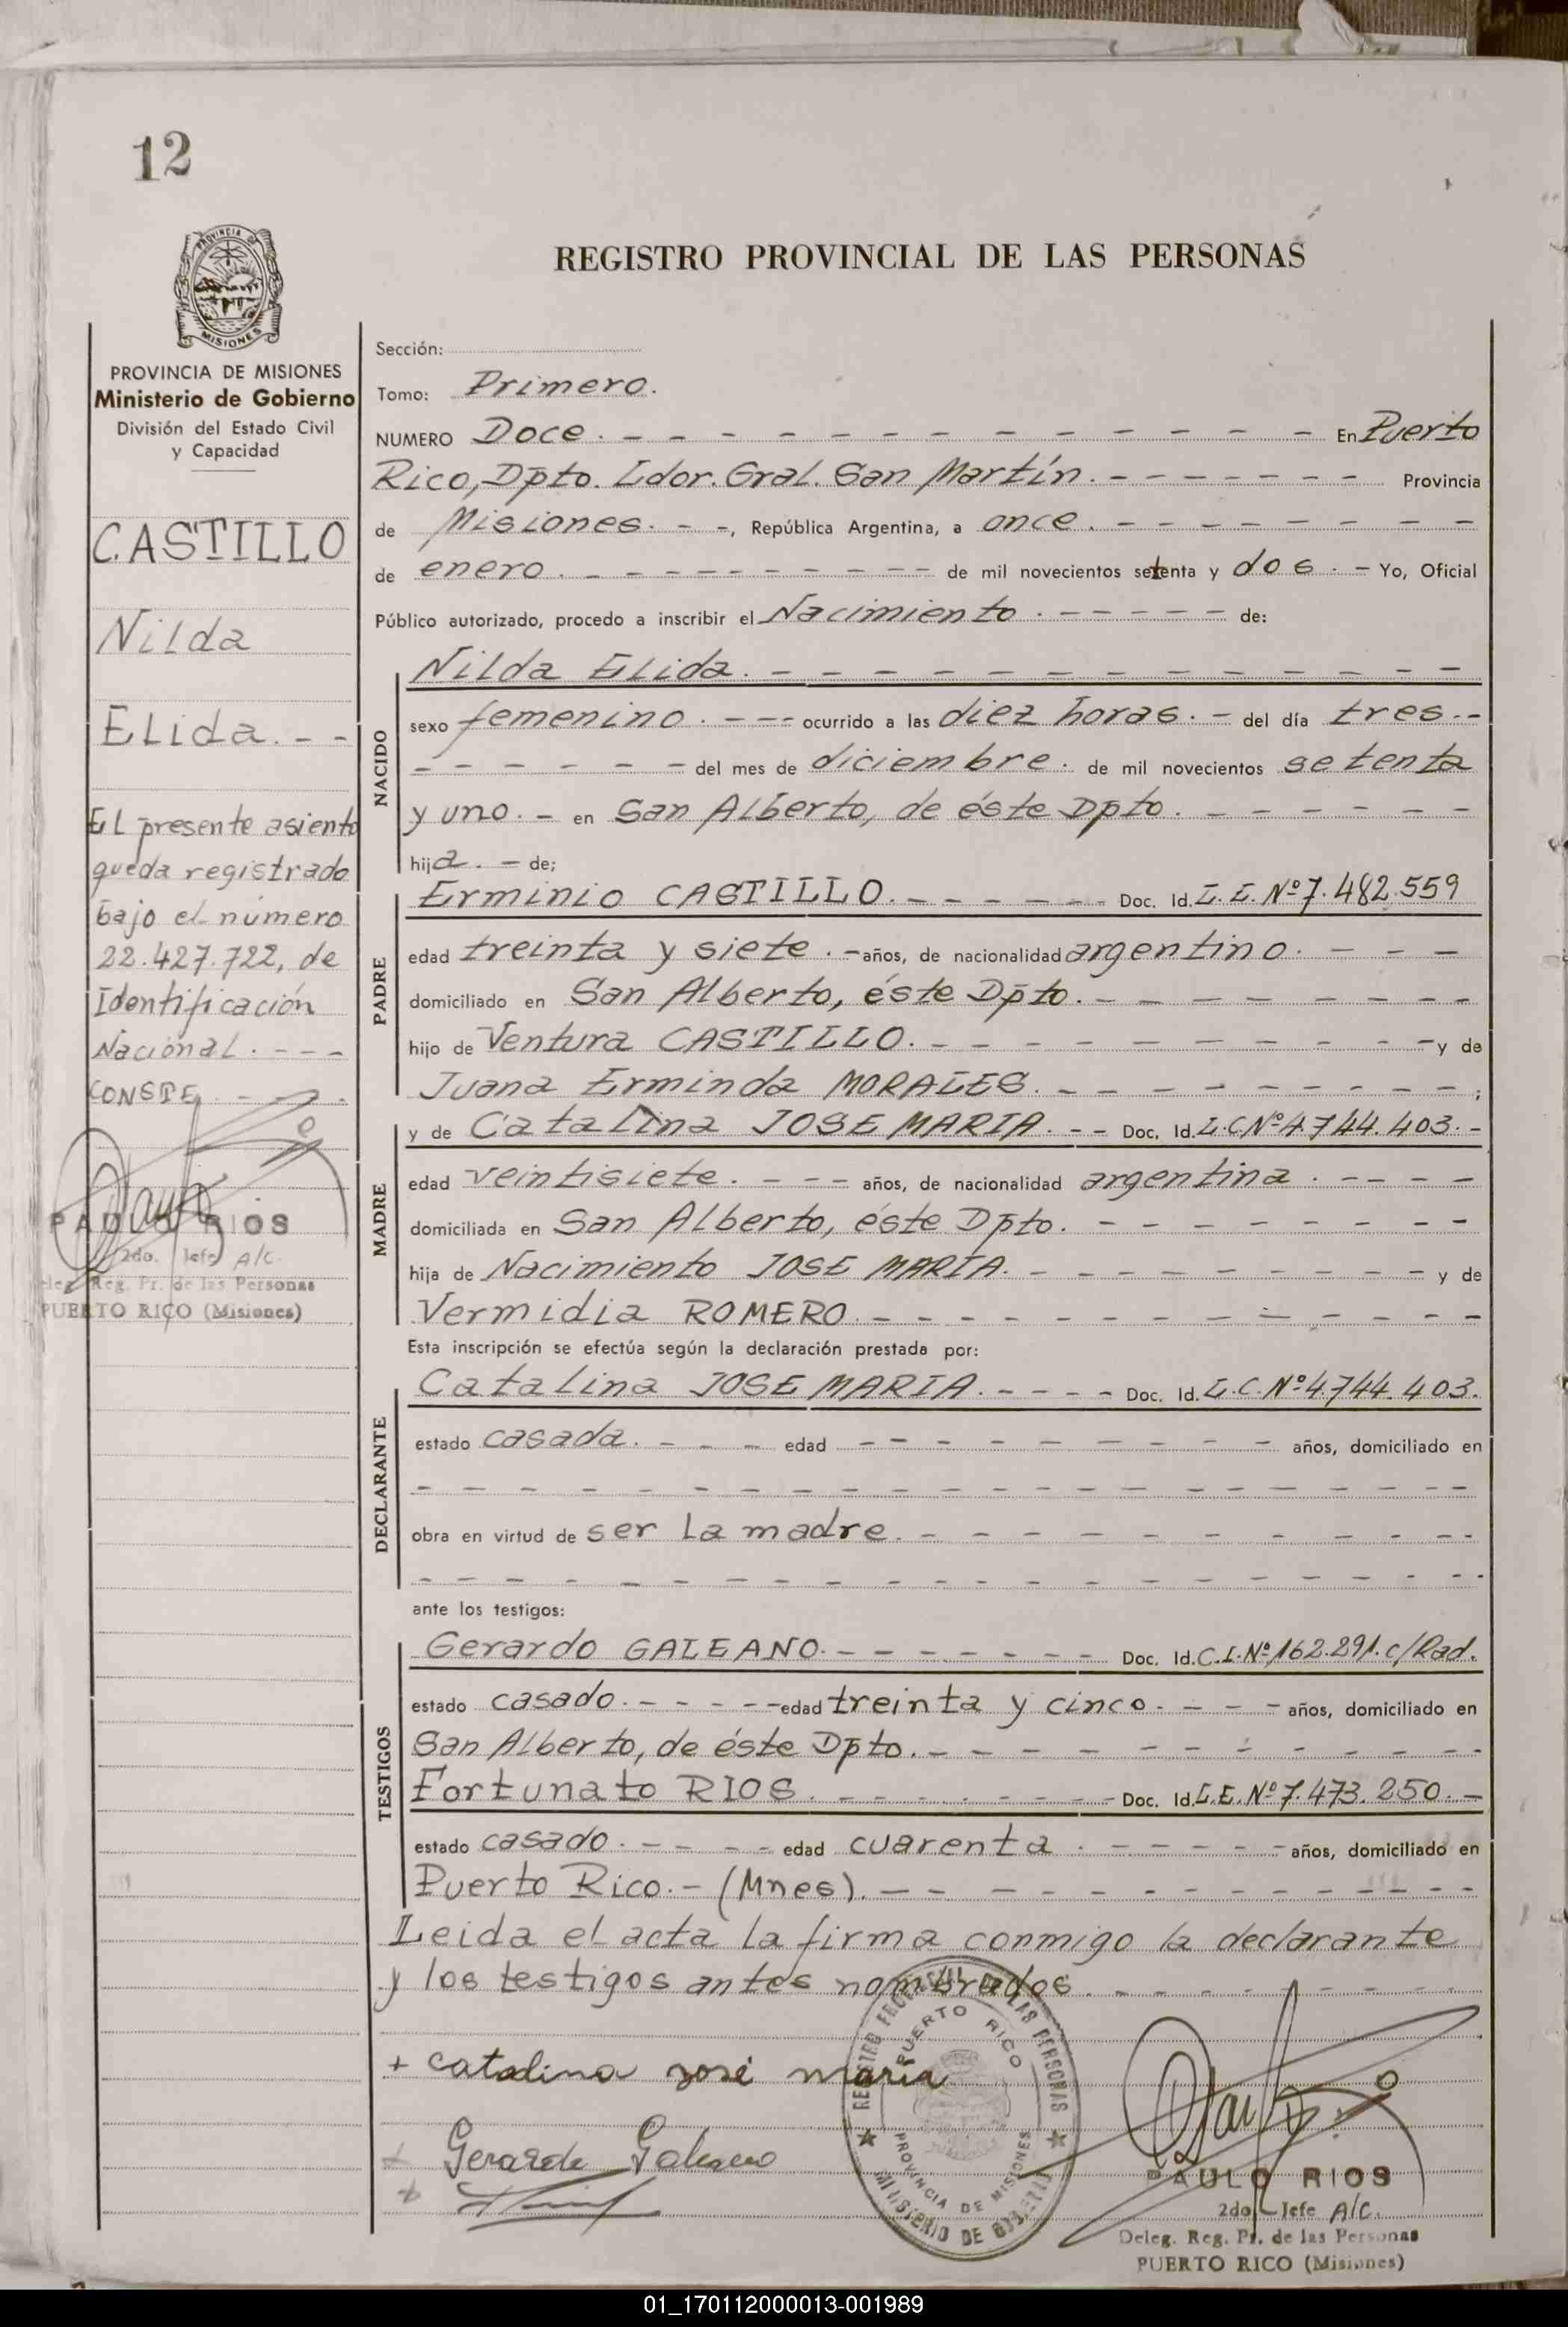 12
PROVINCIA DE
MISIONES
REGISTRO PROVINCIAL DE LAS PERSONAS
PROVINCIA DE MISIONES
Ministerio de Gobierno
División del Estado Civil
y Capacidad
CASTILLO
Nilda
Elida. - -
El presente asiento
queda registrado
bajo el número
22.427.722, de
Identificación
Nacional. - - -
CONSTE. - - -
PAULO RIOS
2do. Jefe A/C.
Deleg. Reg. Pr. de las Personas
PUERTO RICO (Misiones)
Sección:
Tomo: Primero.
NUMERO Doce. - - - - - - - - - - - - - En Puerto
Rico, Dpto. Ldor. Gral. San Martín. - - - - - - - Provincia
de Misiones. - -, República Argentina, a once. - - - - - - - -
de enero. - - - - - - - - - - de mil novecientos setenta y dos. - Yo, Oficial
Público autorizado, procedo a inscribir el Nacimiento. - - - - - de:
NACIDO
Nilda Elida. - - - - - - - - - - - - - -
sexo femenino. - - - ocurrido a las diez horas. - del día tres. - -
- - - - - - del mes de diciembre. de mil novecientos setenta
y uno. - en San Alberto, de éste Dpto. - - - - - -
hija. - de;
PADRE
Erminio CASTILLO. - - - - - - Doc. Id. L. E. Nº 7.482.559
edad treinta y siete. - años, de nacionalidad argentino. - - -
domiciliado en San Alberto, éste Dpto. - - - - - - - -
hijo de Ventura CASTILLO. - - - - - - - - - - y de
Juana Erminda MORALES. - - - - - - - - - ;
MADRE
y de Catalina JOSE MARIA. - - Doc. Id. L.C Nº 4.744.403. -
edad veintisiete. - - - años, de nacionalidad argentina. - - - -
domiciliada en San Alberto, éste Dpto. - - - - - - - -
hija de Nacimiento JOSE MARIA. - - - - - - - - - y de
Vermidia ROMERO. - - - - - - - - - - - -
Esta inscripción se efectúa según la declaración prestada por:
DECLARANTE
Catalina JOSE MARIA. - - - - Doc. Id. L. C. Nº 4.744.403.
estado casada. - - - edad - - - - - - - - - años, domiciliado en
- - - - - - - - - - - - - - - - - - - -
obra en virtud de ser la madre. - - - - - - - - - - -
- - - - - - - - - - - - - - - - - - - - -
ante los testigos:
TESTIGOS
Gerardo GALEANO. - - - - - - - Doc. Id. C.I. Nº 162.291. c/Rad.
estado casado. - - - - - edad treinta y cinco. - - - años, domiciliado en
San Alberto, de éste Dpto. - - - - - - - - - - -
Fortunato RIOS. - - - - - - - Doc. Id. L.E. Nº 7.473.250. -
estado casado. - - - - edad cuarenta. - - - - - años, domiciliado en
Puerto Rico. - (Mnes). - - - - - - - - - - - -
Leida el acta la firma conmigo la declarante
y los testigos antes nombrados. - - - - - - - -
+ catalina josé maria
+ Gerardo Galeano
+
PUERTO RICO
PROVINCIA DE MISIONES
MINISTERIO DE GOBIERNO
PAULO RIOS
2do. Jefe A/C.
Deleg. Reg. Pr. de las Personas
PUERTO RICO (Misiones)
01_170112000013-001989